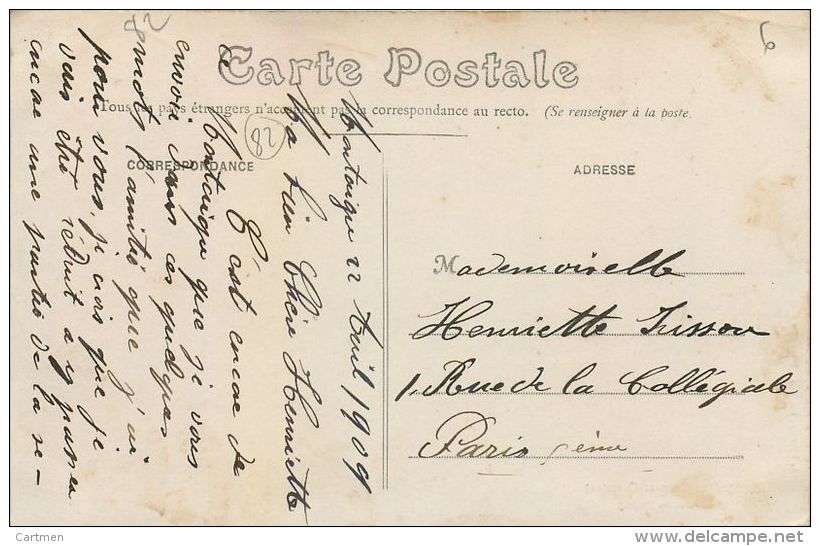 Carte Postale
Tous les pays étrangers n'acceptent pas la correspondance au recto. (Se renseigner à la poste.
CORRESPONDANCE
ADRESSE
82
82
6
Montaigu 22 Avril 1909
Ma bien Chère Henriette
C'est encore de
Montaigu que je vous
envoie ces quelques
mots d'amitié que j'ai
pour vous, je crois que je
vais être réduit a y passer
encore une partie de la se-
Mademoiselle
Henriette
1, Rue de la Collégiale
Paris 5ème
Cartmen
www.delcampe.net